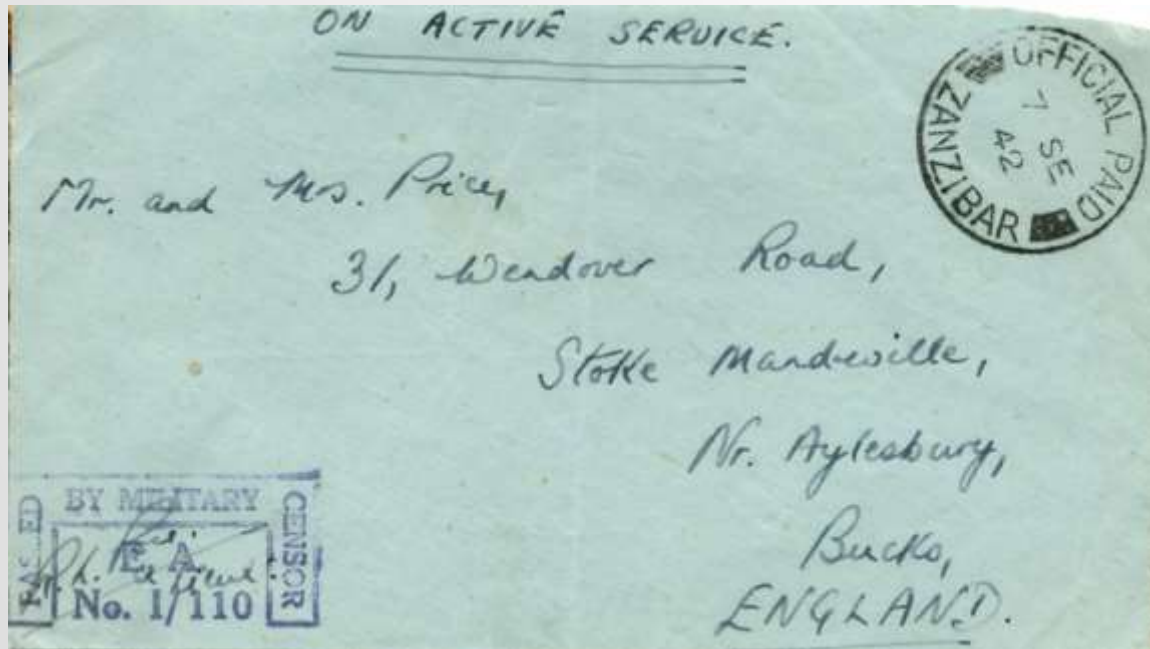 ON ACTIVE SERVICE.
OFFICIAL PAID
ZANZIBAR
7 SE
42
Mr. and Mrs. Price,
31, Wendover Road,
Stoke Mandeville,
Nr. Aylesbury,
Bucks,
ENGLAND.
BY MILITARY
CENSOR
E. A.
No. I/110